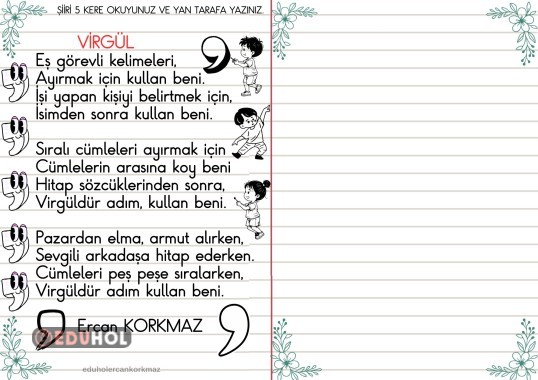 ŞİİRİ 5 KERE OKUYUNUZ VE YAN TARAFA YAZINIZ.
VİRGÜL
Eş görevli kelimeleri,
Ayırmak için kullan beni.
İşi yapan kişiyi belirtmek için,
İsimden sonra kullan beni.
Sıralı cümleleri ayırmak için
Cümlelerin arasına koy beni
Hitap sözcüklerinden sonra,
Virgüldür adım, kullan beni.
Pazardan elma, armut alırken,
Sevgili arkadaşa hitap ederken.
Cümleleri peş peşe sıralarken,
Virgüldür adım kullan beni.
Ercan KORKMAZ
EDUHOL
eduholercankorkmaz